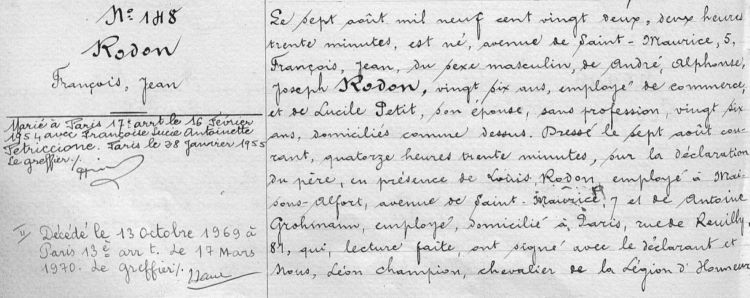 N° 148
Rodon
François, Jean
Marié à Paris 17e arrt le 16 Février
1954 avec Françoise Lucie Antoinette
Petriccione. Paris le 28 Janvier 1955
Le greffier/.
II Décédé le 13 Octobre 1969 à
Paris 13è arrt. Le 17 Mars
1970. Le greffier/.
Le sept août mil neuf cent vingt deux, deux heures
trente minutes, est né, avenue de Saint-Maurice, 5,
François, Jean, du sexe masculin, de André, Alphonse,
Joseph Rodon, vingt six ans, employé de commerce,
et de Lucile Petit, son épouse, sans profession, vingt six
ans, domiciliés comme dessus. Dressé le sept août cou-
rant, quatorze heures trente minutes, sur la déclaration
du père, en présence de Louis Rodon, employé à Mai-
sons-Alfort, avenue de Saint-Maurice, 7 et de Antoine
Grohmann, employé, domicilié à Paris, rue de Reuilly,
81, qui, lecture faite, ont signé avec le déclarant et
Nous, Léon Champion, chevalier de la Légion d'Honneur